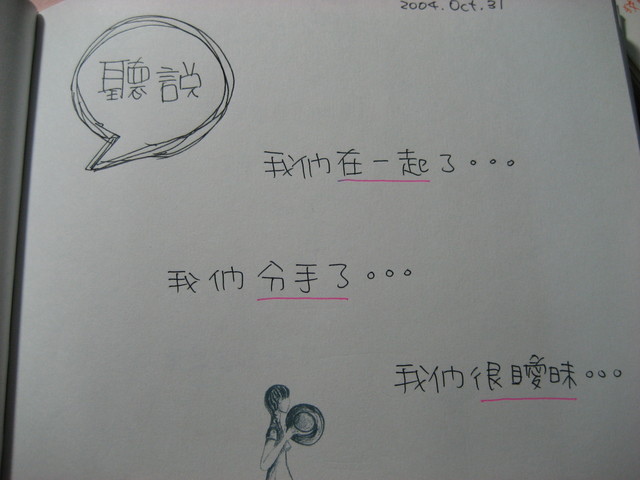 2004.Oct.31
聽說
我們在一起了。。。
我們分手了。。。
我們很曖昧。。。